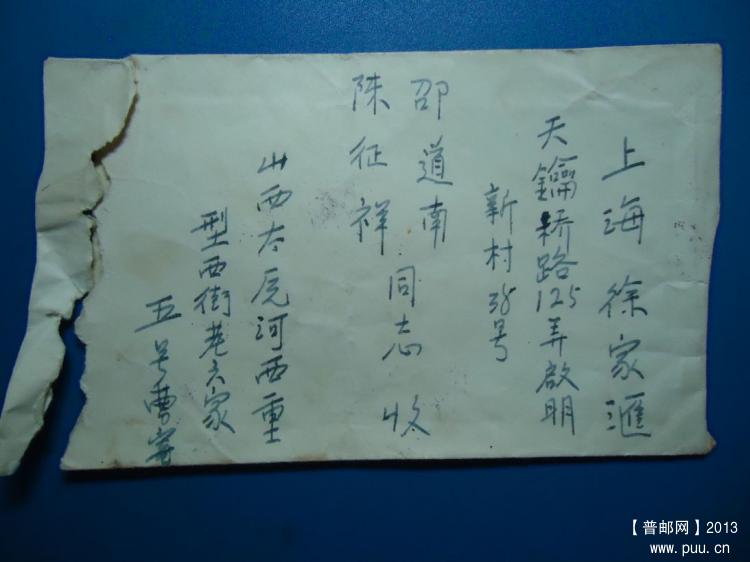 上海徐家滙
天鑰桥路125弄啟明
新村38号
邵道南
陈征祥
同志收
山西太原河西重
型西街巷六家
五号曹寄
【普邮网】2013
www.puu.cn